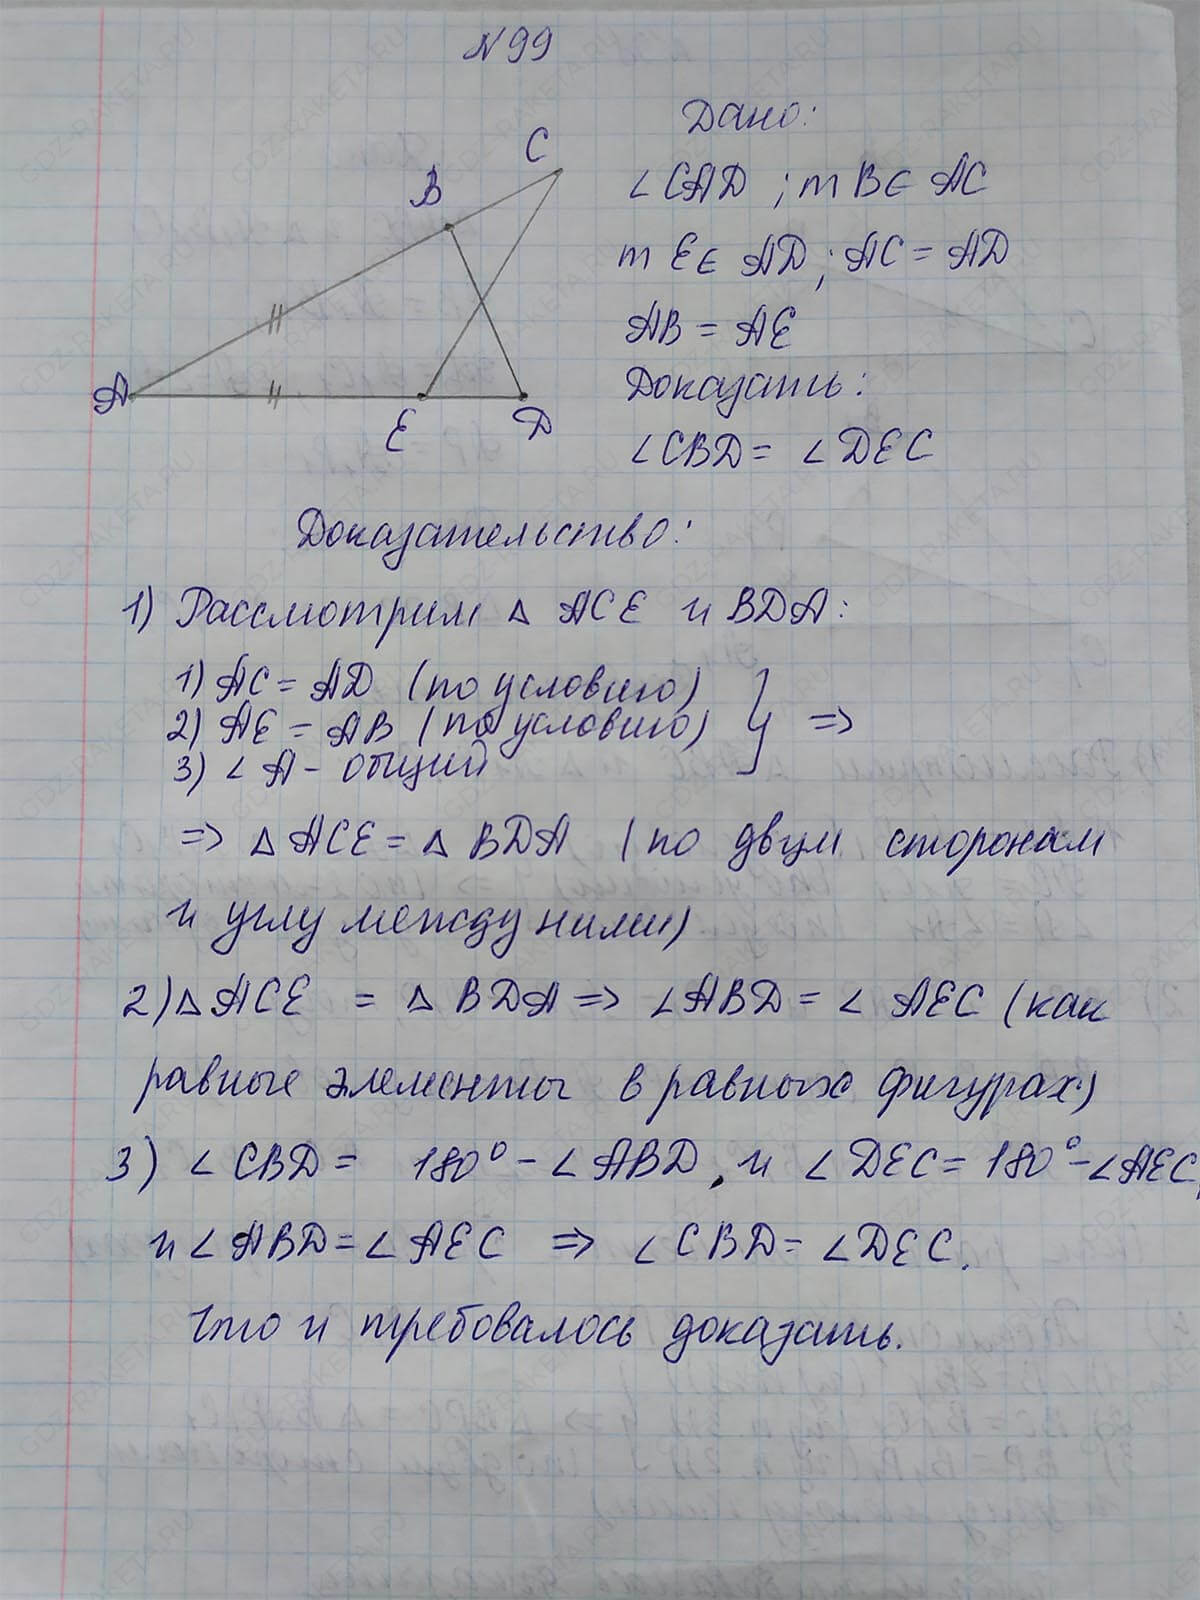 N99
Дано:
∠CAD ; т B∈ AC
т E∈ AD ; AC = AD
AB = AE
Доказать:
∠CBD = ∠DEC
C
B
A
E
D
Доказательство:
1) Рассмотрим △ ACE и BDA:
1) AC = AD (по условию)
2) AE = AB (по условию) } =>
3) ∠A - общий
=> △ ACE = △ BDA (по двум сторонам
и углу между ними)
2) △ ACE = △ BDA => ∠ABD = ∠ AEC (как
равные элементы в равных фигурах)
3) ∠ CBD = 180° - ∠ ABD, и ∠ DEC = 180° - ∠AEC,
и ∠ ABD = ∠ AEC => ∠ CBD = ∠DEC.
Что и требовалось доказать.